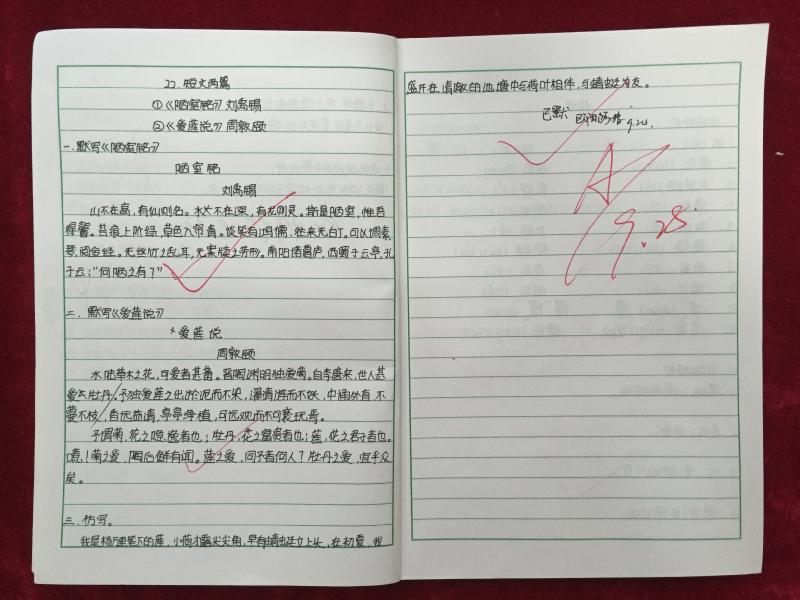 22.短文两篇
①《陋室铭》刘禹锡
②《爱莲说》周敦颐
一.默写《陋室铭》
陋室铭
刘禹锡
山不在高,有仙则名。水不在深,有龙则灵。斯是陋室,惟吾
德馨。苔痕上阶绿,草色入帘青。谈笑有鸿儒,往来无白丁。可以调素
琴,阅金经。无丝竹之乱耳,无案牍之劳形。南阳诸葛庐,西蜀子云亭,孔
子云:“何陋之有?”
二.默写《爱莲说》
爱莲说
周敦颐
水陆草木之花,可爱者甚蕃。晋陶渊明独爱菊。自李唐来,世人甚
爱牡丹。予独爱莲之出淤泥而不染,濯清涟而不妖,中通外直,不
蔓不枝,香远益清,亭亭净植,可远观而不可亵玩焉。
予谓菊,花之隐逸者也;牡丹,花之富贵者也;莲,花之君子者也。
噫!菊之爱,陶后鲜有闻。莲之爱,同予者何人?牡丹之爱,宜乎众
矣。
三.仿写。
我是杨万里笔下的莲,小荷才露尖尖角,早有蜻蜓立上头,在初夏,我
盛开在清澈的池塘中与荷叶相伴,与蜻蜓为友。
已默 9.24.
A
9.28